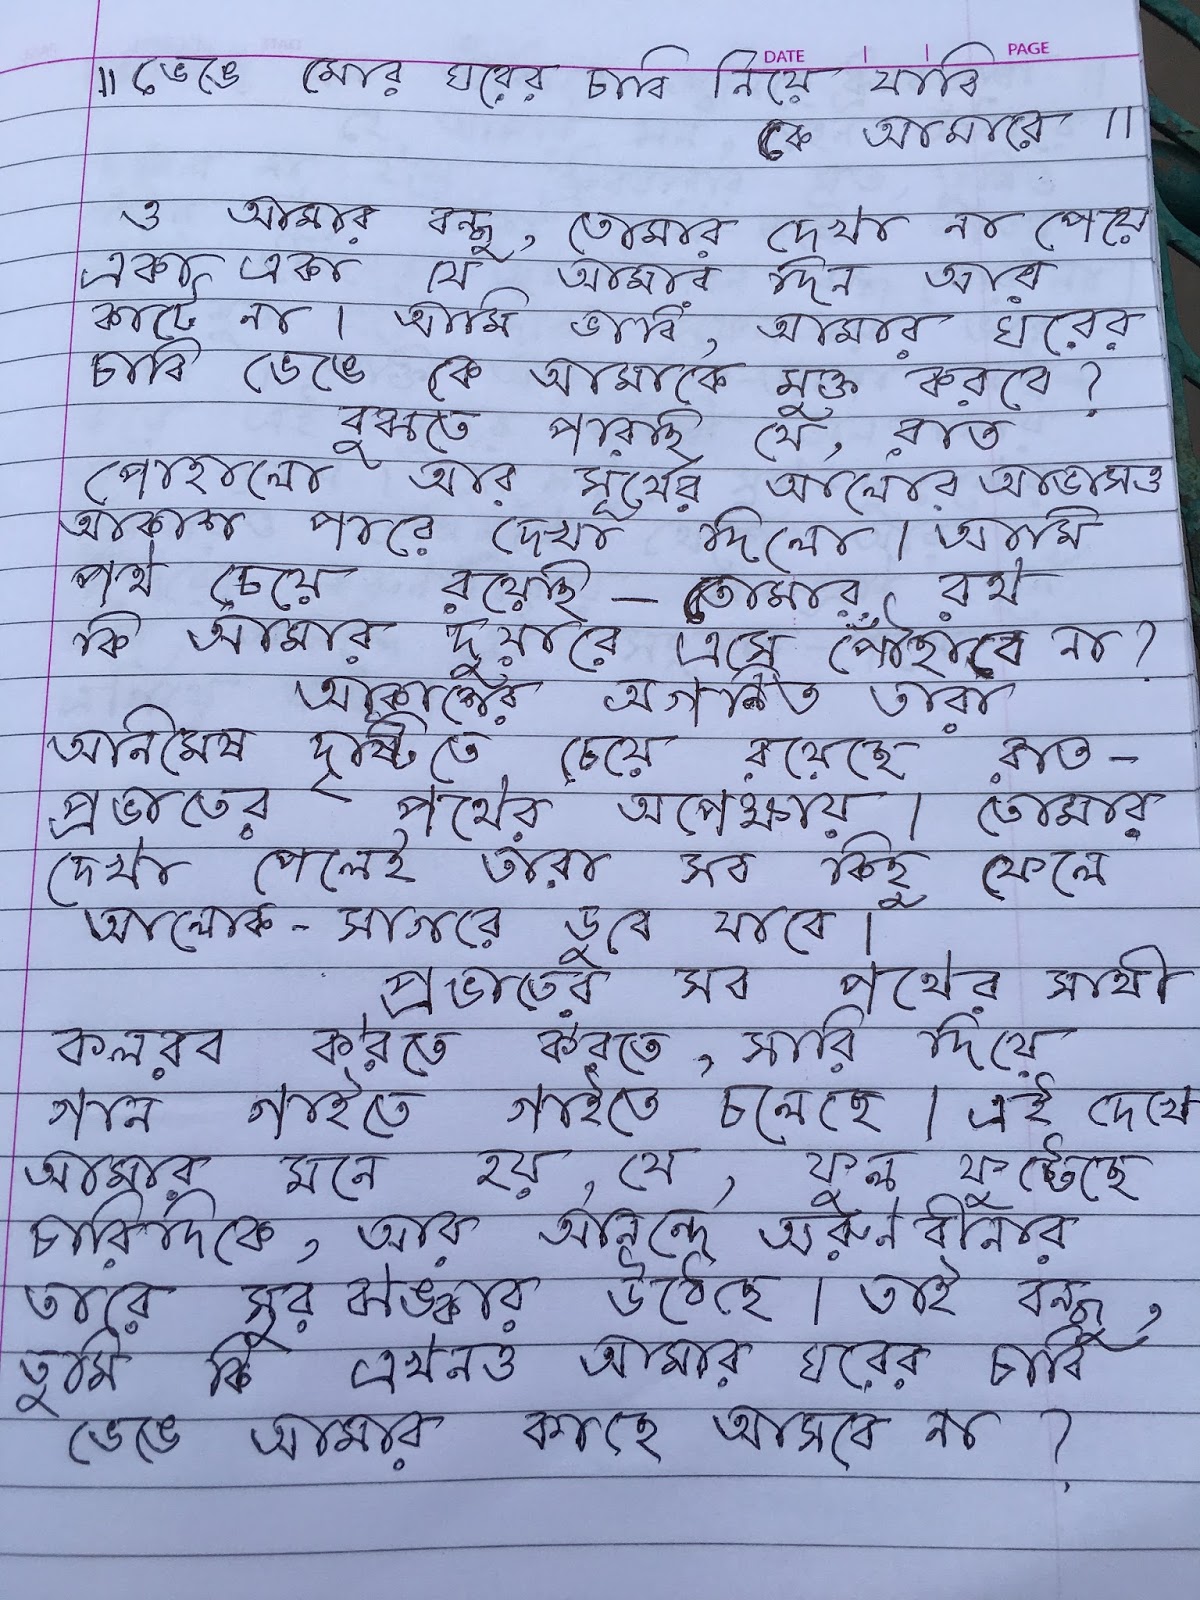 DATE | | PAGE
॥ ভেঙে মোর ঘরের চাবি নিয়ে যাবি
কে আমারে ॥
ও আমার বন্ধু, তোমার দেখা না পেয়ে
একা একা যে আমার দিন আর
কাটে না। আমি ভাবি, আমার ঘরের
চাবি ভেঙে কে আমাকে মুক্ত করবে?
বুঝতে পারছি যে, রাত
পোহালো আর সূর্যের আলোর আভাসও
আকাশ পারে দেখা দিলো। আমি
পথ চেয়ে রয়েছি — তোমার রথ
কি আমার দুয়ারে এসে পৌঁছাবে না?
আকাশের অগণিত তারা
অনিমেষ দৃষ্টিতে চেয়ে রয়েছে রাত-
প্রভাতের পথের অপেক্ষায়। তোমার
দেখা পেলেই তারা সব কিছু ফেলে
আলোক-সাগরে ডুবে যাবে।
প্রভাতের সব পথের সাথী
কলরব করতে করতে, সারি দিয়ে
গান গাইতে গাইতে চলেছে। এই দেখে
আমার মনে হয় যে, ফুল ফুটেছে
চারিদিকে, আর আনন্দে অরুণ বীনার
তারে সুর ঝঙ্কার উঠেছে। তাই বন্ধু,
তুমি কি এখনও আমার ঘরের চাবি
ভেঙে আমার কাছে আসবে না?